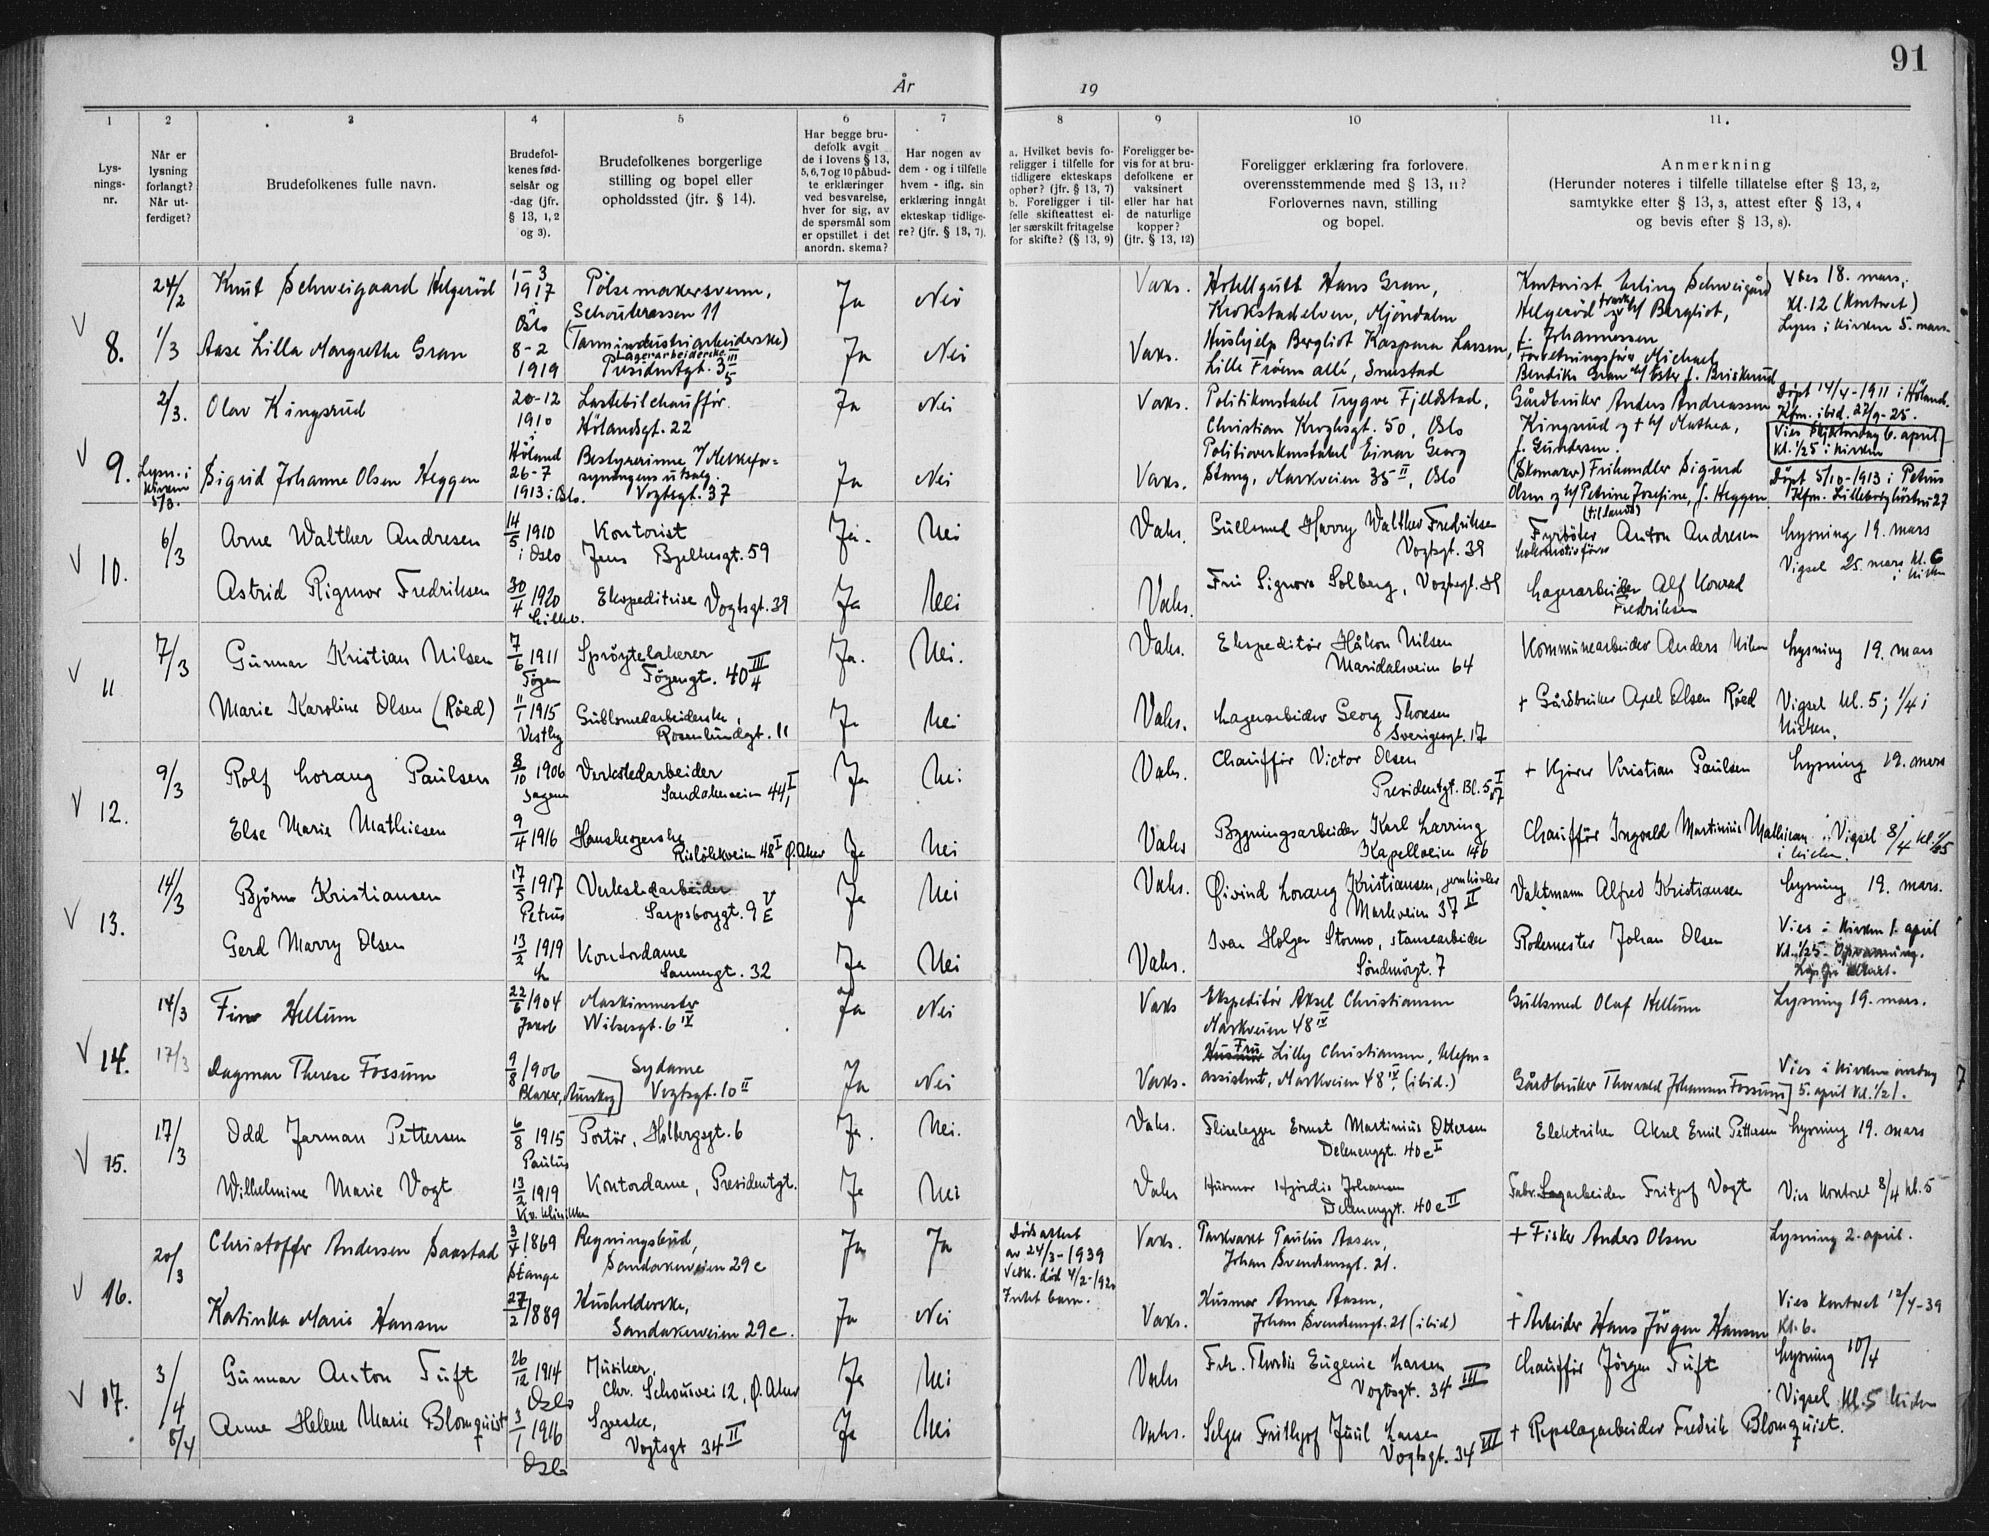 91
År
19
1
2
3
4
5
6
7
8
9
10
11.
Lys-
nings-
nr.
Når er
lysning
forlangt?
Når ut-
ferdiget?
Brudefolkenes fulle navn.
Brudefol-
kenes fød-
selsår og
-dag (jfr.
§ 13, 1, 2
og 3).
Brudefolkenes borgerlige
stilling og bopel eller
opholdssted (jfr. § 14).
Har begge bru-
defolk avgit
de i lovens § 13,
5, 6, 7 og 10 påbud-
te erklæringer
ved besvarelse,
hver for sig, av
de spørsmål som
er opstillet i det
anordn. skema?
Har nogen av
dem - og i tilfelle
hvem - iflg. sin
erklæring inngåt
ekteskap tidlige-
re? (jfr. § 13, 7).
a. Hvilket bevis fo-
religger i tilfelle for
tidligere ekteskaps
ophør? (jfr. § 13, 7)
b. Foreligger i til-
felle skifteattest el-
ler særskilt fritagelse
for skifte? (§ 13, 9)
Foreligger be-
vis for at bru-
defolkene er
vaksinert
eller har hat
de naturlige
kopper?
(jfr. § 13, 12)
Foreligger erklæring fra forlovere,
overensstemmende med § 13, 11?
Forlovernes navn, stilling
og bopel.
Anmerkning
(Herunder noteres i tilfelle tillatelse efter § 13, 2,
samtykke efter § 13, 3, attest efter § 13, 4
og bevis efter § 13, 8).
V 8.
24/2
Knut Schweigaard Helgerød
1-3
1917
i
Oslo
Pølsemakersvenn,
Schouterrassen 11
Ja
Nei
Vaks.
Hotellgutt Hans Gran,
Krokstadelven, Mjøndalen
Kontorist Erling Schweigård
Helgerød og h/ Bergliot,
f. Johannessen
Vies 18. mars,
kl. 12 (Kontoret)
Lyses i kirken 5. mars.
1/3
Aase Lilla Margrethe Gran
8-2
1919
(Tannindustriarbeiderske)
Lagerarbeiderske
Presidentgt. 3 III/5
Ja
Nei
Vaks.
Hushjelp Bergliot Kaspara Larsen,
Lille Frøen allé, Smestad
Forretningsfører Michael
Bendiks Gran h/ Ester f. Briskerud
V 9.
2/3.
Olav Kingsrud
20-12
1910
i
Høland
Lastebilchauffør.
Hølandsgt. 22
Ja
Nei
Vaks.
Politikonstabel Trygve Fjeldstad,
Christian Kroghsgt. 50, Oslo
Gårdbruker Anders Andreassen
Kingsrud og + h/ Mathea,
f. Gundersen.
Døpt 17/4-1911 i Høland.
Kfm. ibid. 27/9-25.
Vies Skjærtorsdag 6. april
kl. 1/25 i kirken
Lysn. i
kirken
5/3.
Sigrid Johanne Olsen Heggen
26-7
1913 i Oslo.
Bestyrerinne v/ Melkefor-
syningens utsalg.
Vogtsgt. 37
Ja
Nei
Vaks.
Politioverkonstabel Einar Georg
Stang, Markveien 35 II, Oslo
(Skomaker) Frihandler Sigurd
Olsen og h/ Petrine Josefine, f. Heggen
Døpt 5/10-1913 i Petrus
Kfm. Lilleborg høsten 27
V 10.
6/3
Arne Walther Andresen
14/5 1910
i Oslo
Kontorist
Jens Bjelkesgt. 59
Ja.
Nei
Vaks.
Gullsmed Harry Walther Fredriksen
Vogtsgt. 39
(til lands)
Fyrbøter Anton Andresen
Lokomotivfører
Lysning 19. mars
Vigsel 25. mars kl. 6
i kirken
Astrid Rigmor Fredriksen
30/4 1920
Lilleb.
Ekspeditrise Vogtsgt. 39
Ja
Nei
Vaks.
Fru Signora Solberg, Vogtsgt. 39
Lagerarbeider Alf Konrad
Fredriksen
V 11
7/3
Gunnar Kristian Nilsen
7/6 1911
Tøyen
Sprøytelakerer
Tøyengt. 40 III/4
Ja.
Nei.
Vaks.
Ekspeditør Håkon Nilsen
Maridalsveien 64
Kommunearbeider Anders Nilsen
Lysning 19. mars
Marie Karoline Olsen (Røed)
11/1 1915
Vestby
Gullsmedarbeiderske,
Rosenlundgt. 11
Ja
Nei
Vaks.
Lagerarbeider Georg Thoresen
Sverigesgt. 17
+ Gårdbruker Axel Olsen Røed
Vigsel kl. 5; 1/4 i
kirken.
V 12.
9/3
Rolf Lorang Paulsen
8/10 1906
Sagene
Verkstedarbeider
Sandakerveien 44 I/1
Ja
Nei
Vaks.
Chauffør Victor Olsen
Presidentgt. Bl. 5 I/07
+ Kjører Kristian Paulsen
Lysning 19. mars
Else Marie Mathiesen
9/4 1916
Hanskesyerske
Risløkkveien 48 I Ø. Aker
Ja
Nei
Vaks
Bygningsarbeider Karl Larring
Kapellveien 146
Chauffør Ingvald Martinius Mathiesen
Vigsel 8/4 kl. 1/25
i kirken.
V 13.
14/3
Bjørn Kristiansen
17/5 1917
Petrus
Verkstedarbeider
Sarpsborggt. 9 V/E
Ja
Nei
Vaks.
Øivind Lorang Kristiansen, jernhivler
Markveien 37 II
Vaktmann Alfred Kristiansen
Lysning 19. mars.
Gerd Marry Olsen
13/2 1919
Kontordame
Sannergt. 32
Ja
Nei
Vaks.
Ivar Holger Stormo, stansearbeider
Søndmørgt. 7
Rodemester Johan Olsen
Vies i kirken 1. april
kl. 1/25. Opvarming.
V 14.
14/3
Finn Hellum
22/6 1904
Jakob
Maskinmester
Wilsesgt. 6 IV
Ja
Nei
Vaks
Ekspeditør Aksel Christiansen
Markveien 48 IV
Gullsmed Olaf Hellum
Lysning 19. mars.
17/3
Dagmar Therese Fossum
9/8 1906
Blaker, Aurskog
Sydame
Vogtsgt. 10 II
Ja
Nei
Vaks.
Fru
Husmor Lilly Christiansen, klefm=
assistent, Markveien 48 IV (ibid.)
Gårdbruker Thorvald Johansen Fossum
Vies i kirken onsdag
5. april kl. 1/21.
V 15.
17/3
Odd Jarman Pettersen
6/8 1915
Paulus
Portør, Holbergsgt. 6
Ja.
Nei.
Vaks.
Fliselegger Ernst Martinius Ottersen
Delenenggt. 40 c I
Elektriker Aksel Emil Pettersen
Lysning 19. mars
Wilhelmine Marie Vogt
13/2 1919
Kv. klinikken
Kontordame, Presidentgt.
Ja
Nei
Vaks
Husmor Hjørdis Johansen
Delenenggt. 40 c II
Fabr. Lagarbeider Fritjof Vogt
Vies kontoret 8/4 kl. 5
V 16.
20/3
Christoffer Andersen Saastad
3/4 1869
i
Stange
Regningsbud,
Sandakerveien 29 c
Ja
Ja
Dødsattest
av 24/3-1939
Vekk. død 4/2-192
Intet barn.
Vaks.
Parkvakt Paulus Aasen,
Johan Svendsensgt. 21.
+ Fisker Anders Olsen
Lysning 2. april.
Katinka Marie Hansen
27/2 1889
Husholderske,
Sandakerveien 29 c.
Ja
Nei
Vaks.
Husmor Anna Aasen,
Johan Svendsensgt. 21 (ibid)
+ Arbeider Hans Jørgen Hansen
Vies kontoret 12/4-39
kl. 6.
V 17.
3/4
Gunnar Anton Tuft
26/12 1914
Oslo
Musiker,
Chr. Schousvei 12, Ø. Aker
Ja
Nei
Vaks
Frk. Thordis Eugenie Larsen
Vogtsgt. 34 III
Chauffør Jørgen Tuft
Lysning 10/4
8/4
Anne Helene Marie Blomquist
3/1 1916
Oslo
Syerske,
Vogtsgt 34 II
Ja
Nei
Vaks.
Selger Frithjof Juul Larsen
Vogtsgt. 34 III
+ Repslagarbeider Fredrik Blomquist.
Vigsel kl. 5 kirken